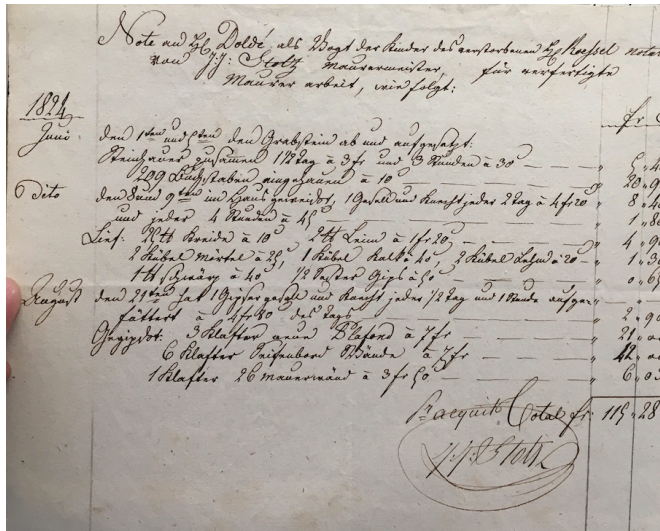 Note an H. Doldé, als Vogt der Kinder des verstorbenen H. Roessel notar
von J. J. Stotz Maurermeister, für verfertigte
Maurer arbeit, wie folgt:
1824
fr
Juni den 1ten und 5ten den Grabstein ab und aufgesetzt:
Steinhauer zusamen 1½ tag à 3 fr und 3 Stunden à 30
209 Buchstaben eingehauen à 10 20
Dito den 8 und 9ten im Haus 1 Gesell und Knecht jeder 2 tag à 4 fr 20 8
und jeder 4 Stunden à 45 1
Lief: Kreide à 10 2 tt Leim à 1 fr 20 4
2 Kübel Mörtel à 25 1 Kübel Kalk à 40 2 Kübel Lehm à 20 1
1 tt Schwärz à 40 ½ Sester Gips à 50 0
August den 21ten hat 1 Gipser gesell und Knecht jeder ½ tag und 1 Stunde
füttert à 4 fr 20 des tags 2
Gegipset: 3 Klafter neue Blafond à 7 fr 21
6 Klafter Wände à 7 fr 42
1 Klafter 26 mauerwänd à 3 fr 50 6
Pr acquit Total fr: 115 28
J. J. Stotz